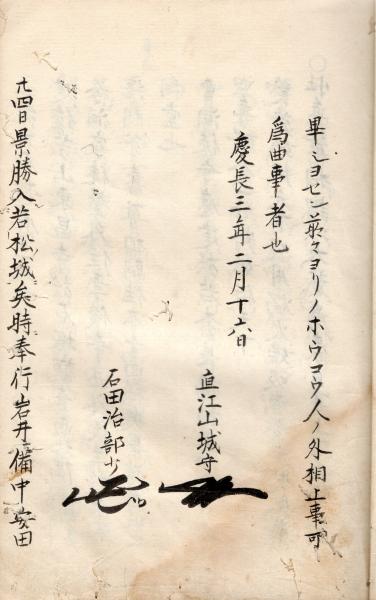 畢シヨセン前々ヨリノホウコウ人ノ外相上事可
為曲事者也
慶長三年二月十六日
直江山城守
石田治部少
廿四日景勝入若松城矣時奉行岩井備中安田